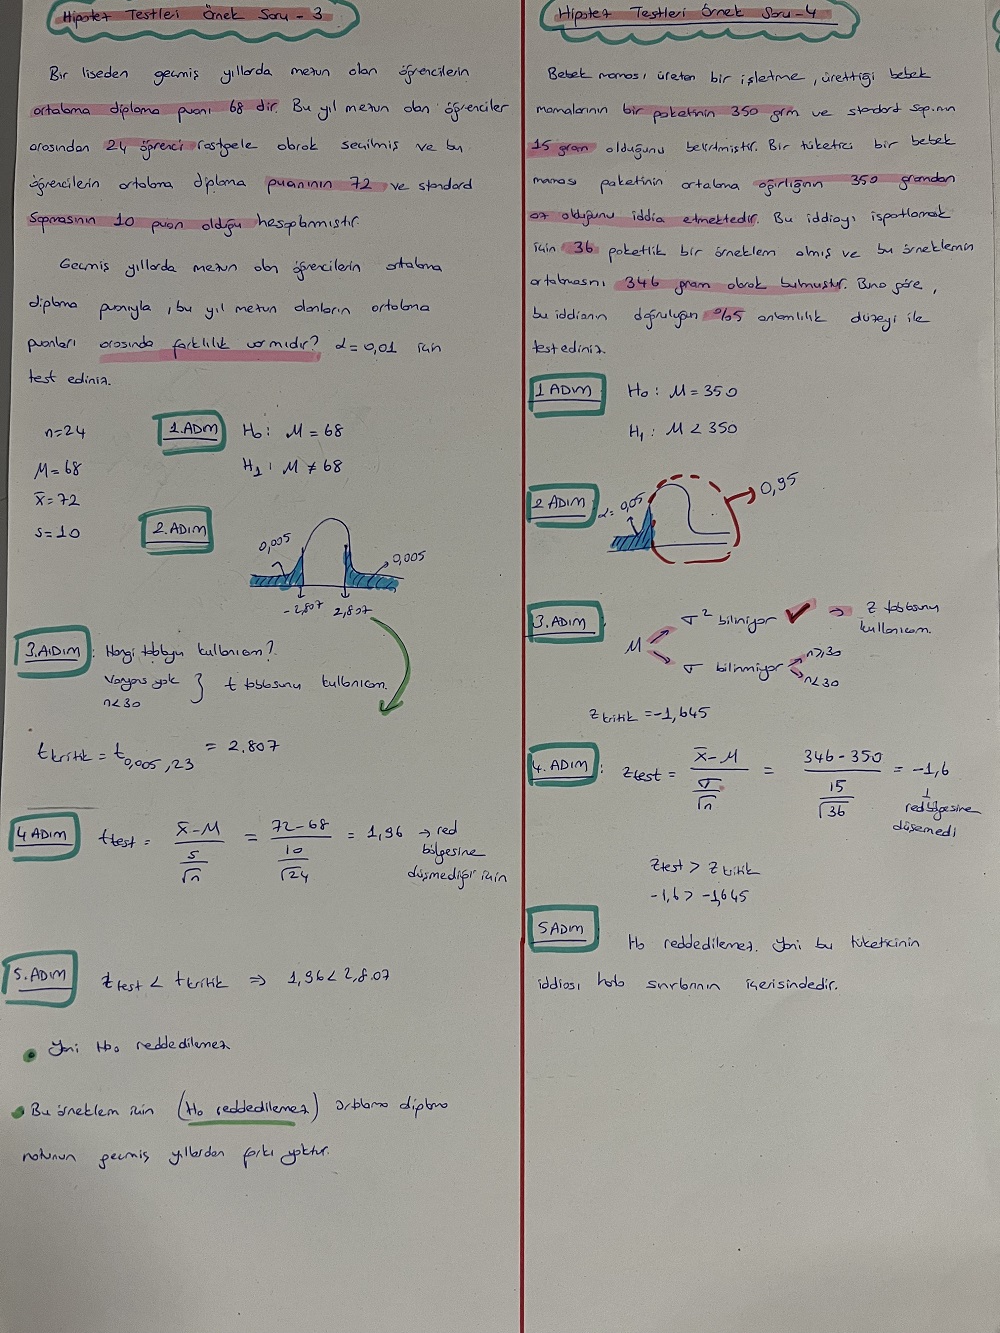 Hipotez Testleri Örnek Soru - 3
Bir liseden geçmiş yıllarda mezun olan öğrencilerin
ortalama diploma puanı 68 dir. Bu yıl mezun olan öğrenciler
arasından 24 öğrenci rastgele olarak seçilmiş ve bu
öğrencilerin ortalama diploma puanının 72 ve standard
sapmasının 10 puan olduğu hesaplanmıştır.
Geçmiş yıllarda mezun olan öğrencilerin ortalama
diploma puanıyla, bu yıl mezun olanların ortalama
puanları arasında farklılık varmıdır? α = 0,01 için
test ediniz.
n=24
M=68
x̄=72
s=10
1.ADIM
H₀: M = 68
H₁: M ≠ 68
2.ADIM
0,005
0,005
-2,807 2,807
3.ADIM : Hangi tabloyu kullanıcam?
Varyans yok
n<30
} t tablosunu kullanıcam.
t kritik = t 0,005,23 = 2.807
4 ADIM
t test = x̄-M / s/√n = 72-68 / 10/√24 = 1,96 → red
bölgesine
düşmediği için
5.ADIM
t test < t kritik ⇒ 1,96 < 2,8.07
Yani H₀ reddedilemez
Bu örneklem için (H₀ reddedilemez) ortalama diploma
notunun geçmiş yıllardan farkı yoktur.
Hipotez Testleri Örnek Soru - 4
Bebek maması üreten bir işletme, ürettiği bebek
mamalarının bir paketinin 350 gram ve standard sap.nın
15 gram olduğunu belirtmiştir. Bir tüketici bir bebek
maması paketinin ortalama ağırlığının 350 gramdan
az olduğunu iddia etmektedir. Bu iddiayı ispatlamak
için 36 paketlik bir örneklem almış ve bu örneklemin
ortalmasını 346 gram olarak bulmuştur. Buna göre,
bu iddianın doğruluğun %5 anlamlılık düzeyi ile
test ediniz.
1 ADIM
H₀ : M = 350
H₁ : M < 350
2 ADIM
α = 0,05
0,95
3.ADIM
M
σ² biliniyor ✓ ⇒ z tablosunu
kullanıcam.
σ bilinmiyor n≥30
n<30
z kritik = -1,645
4.ADIM :
z test = x̄-M / σ/√n = 346-350 / 15/√36 = -1,6
↓
red bölgesine
düşemedi
z test > z kritik
-1,6 > -1,645
5ADIM
H₀ reddedilemez. Yani bu tüketicinin
iddiası hata sınırlarının içerisindedir.